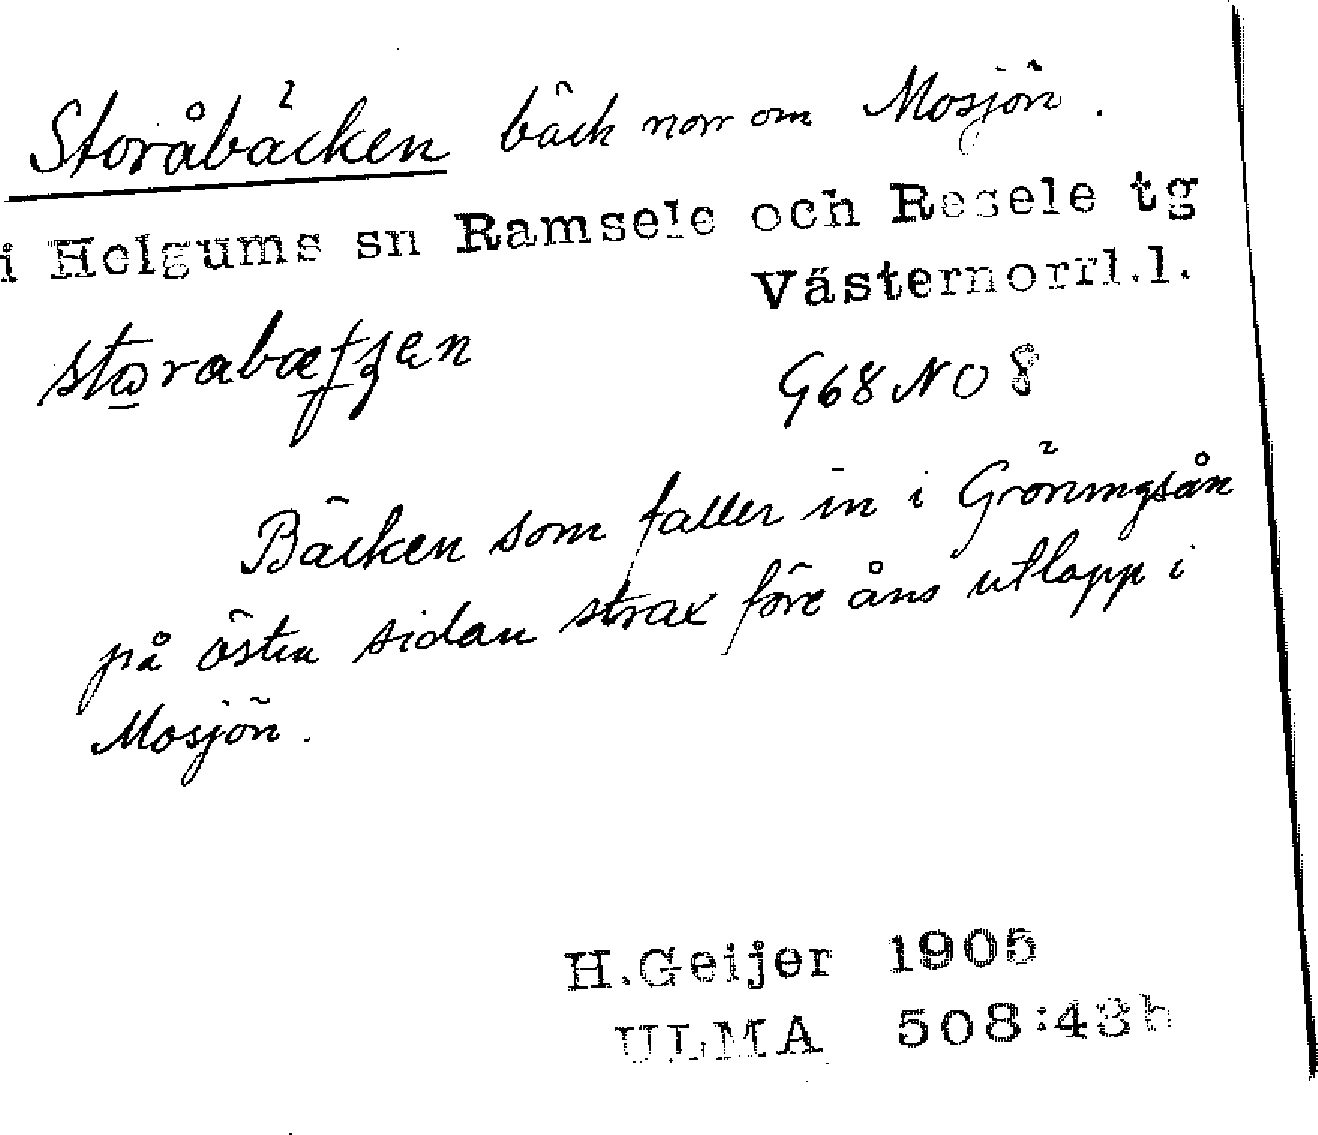 Storåbäcken bäck norr om Mosjön.
i Helgums sn Ramsele och Resele tg
Västernorrl.l.
G68 NO 8
Bäcken som faller in i Gröningsån
på östra sidan strax före åns utlopp i
Mosjön.
H.Geijer 1905
ULMA 508:43h